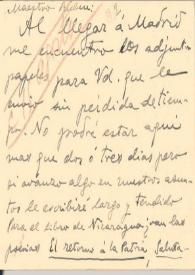 Maestro
Al llegar á Madrid
me encuentro los adjuntos
papeles para Vd. que le
envio sin pérdida de tiem-
po. No podré estar aquí
mas que dos ó tres dias pero
si avanzo algo en nuestros asun-
tos le escribiré largo y tendido
Para el libro de Nicaragua, van las
poesias El retorno á la Patria, Saluta-